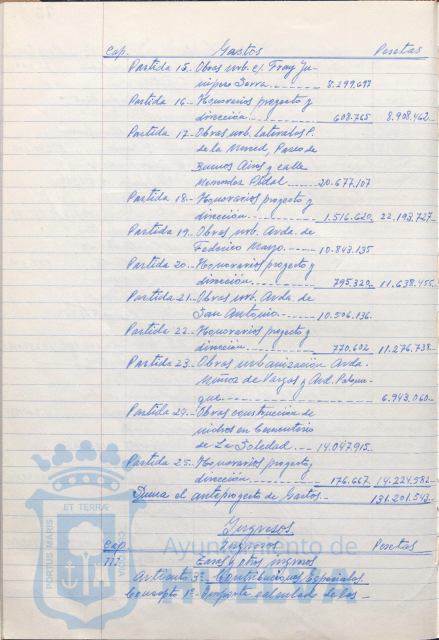 Cap. Gastos Pesetas
Partida 15.- Obras urb. c/. Fray Ju-
nípero Serra 8.299.697
Partida 16.- Honorarios proyecto y
dirección 608.765 8.908.462
Partida 17.- Obras urb. laterales P.
de la Merced, Paseo de
Buenos Aires y calle
Menendez Pidal 20.677.107
Partida 18.- Honorarios proyecto y
dirección 1.516.620 22.193.727
Partida 19.- Obras urb. Avda. de
Federico Mayo. 10.843.135
Partida 20.- Honorarios proyecto y
dirección 795.320 11.638.455
Partida 21.- Obras urb. Avda. de
San Antonio 10.506.136
Partida 22.- Honorarios proyecto y
dirección 770.602 11.276.738
Partida 23.- Obras urbanización Avda.
Muñoz de Vargas y Avd. Palom-
que 6.943.060
Partida 24.- Obras construcción de
nichos en Cementerio
de La Soledad 14.047.915
Partida 25.- Honorarios proyecto y
dirección 176.667 14.224.582
Suma el anteproyecto de Gastos.- 131.201.543
Ingresos
Cap. Ingresos Pesetas
III. Tasas y otros ingresos
Artículo 3º- Contribuciones Especiales
Concepto 1º- Importe calculado de las
Ayuntamiento de
HUELVA
PORTUS MARIS
ET TERRAE